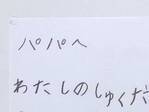 パパへ
わたしのしゅくだ